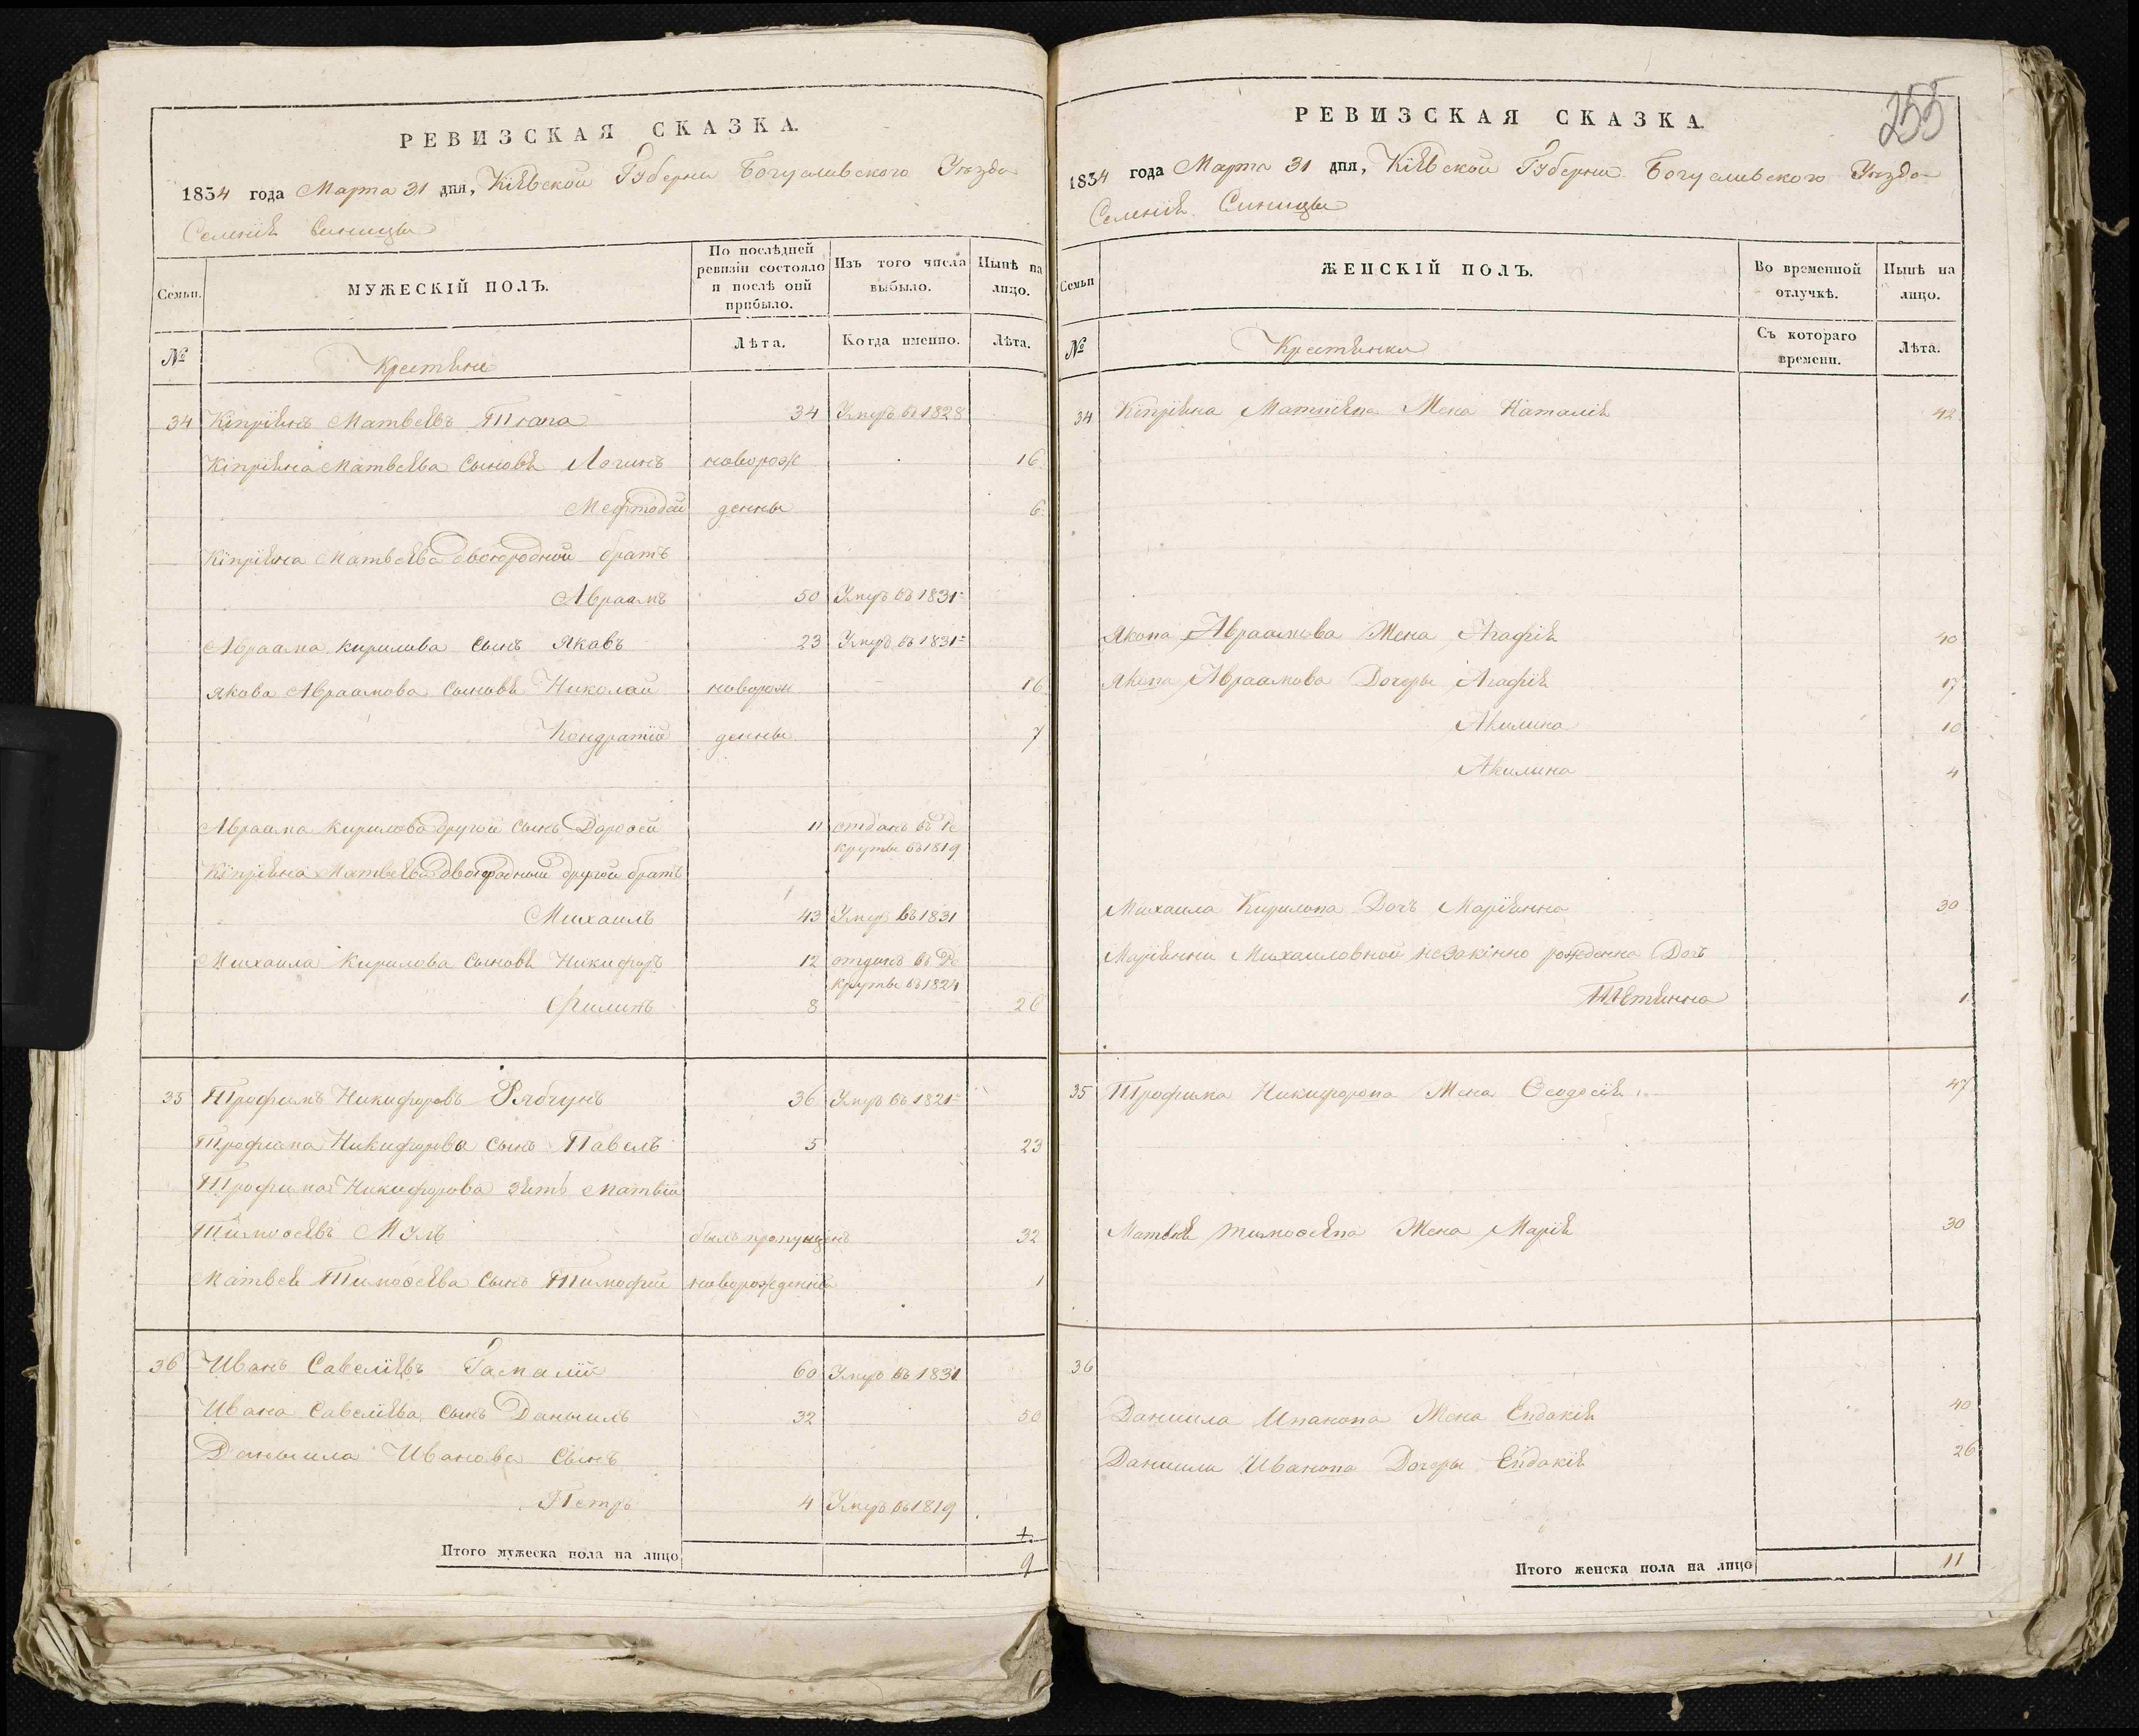 РЕВИЗСКАЯ СКАЗКА.
1834 года Марта 31 дня, Кіевской Губерни Богуславского Уѣзда
Селенія Синицы
Семьи.
МУЖЕСКІЙ ПОЛЪ.
По послѣдней ревизіи состояло и послѣ оной прибыло.
Изъ того числа выбыло.
Нынѣ на лицо.
№
Крестяне
Лѣта.
Когда именно.
Лѣта.
34 Кіпріянъ Матвеявъ 34 Умеръ въ 1828
Кіпріяна Матвеява Сыновя Логинъ новорож 16
Мефтодой денны 6
Кіпріяна Матвеява двоюродной братъ
Авраамъ 50 Умеръ въ 1831
Авраама Кирилова Сынъ Яковъ 23 Умеръ въ 1831
Якова Авраамова Сыновя Николай новорож 16
Кондратій денны 7
Авраама Кирилова другой Сынъ Дорофей 11 отданъ въ Ре
круты въ 1819
Кіпріяна Матвеява двоюродный другой братъ
Михаилъ 43 Умеръ въ 1831
Михаила Кирилова Сыновя Никифоръ 12 отданъ въ Ре
круты въ 1824
Филипъ 8 26
35 Трофимъ Никифоровъ Рябчунъ 36 Умеръ въ 1821
Трофима Никифорова Сынъ Павелъ 5 23
Трофима Никифорова зять Матвій
Тимофеявъ былъ пропущенъ 32
Матвея Тимофеява Сынъ Тимофей новорожденны 1
36 Иванъ Савеліявъ Гамалій 60 Умеръ въ 1831
Ивана Савеліява Сынъ Даныилъ 32 50
Даныила Иванова Сынъ
Петръ 4 Умеръ въ 1819
Итого мужеска пола на лицо 9
255
РЕВИЗСКАЯ СКАЗКА
1834 года Марта 31 дня, Кіявской Губерни Богуславского Уѣзда
Селенія Синицы
Семьи
ЖЕНСКІЙ ПОЛЪ.
Во временной отлучкѣ.
Нынѣ на лицо.
№
Крестянки
Съ котораго времени.
Лѣта.
34 Кіпріяна Матпіяпа Жена Наталія 42
Якопа Авраамова Жена Агафія 40
Якопа Авраамова Дочеры Агафія 17
Акилина 10
Акилина 4
Михаила Кирилопа Дочъ Маріянна 30
Маріянни Михаиловной незакінно рожденна Дочъ
Тетянна 1
35 Трофима Никифоропа Жена Феодосія 47
Матвея Тимофеяпа Жена Марія 30
36
Даниила Ипанопа Жена Епдакія 40
Даниила Иванопа Дочеры Епдакія 26
Итого женска пола на лицо 11